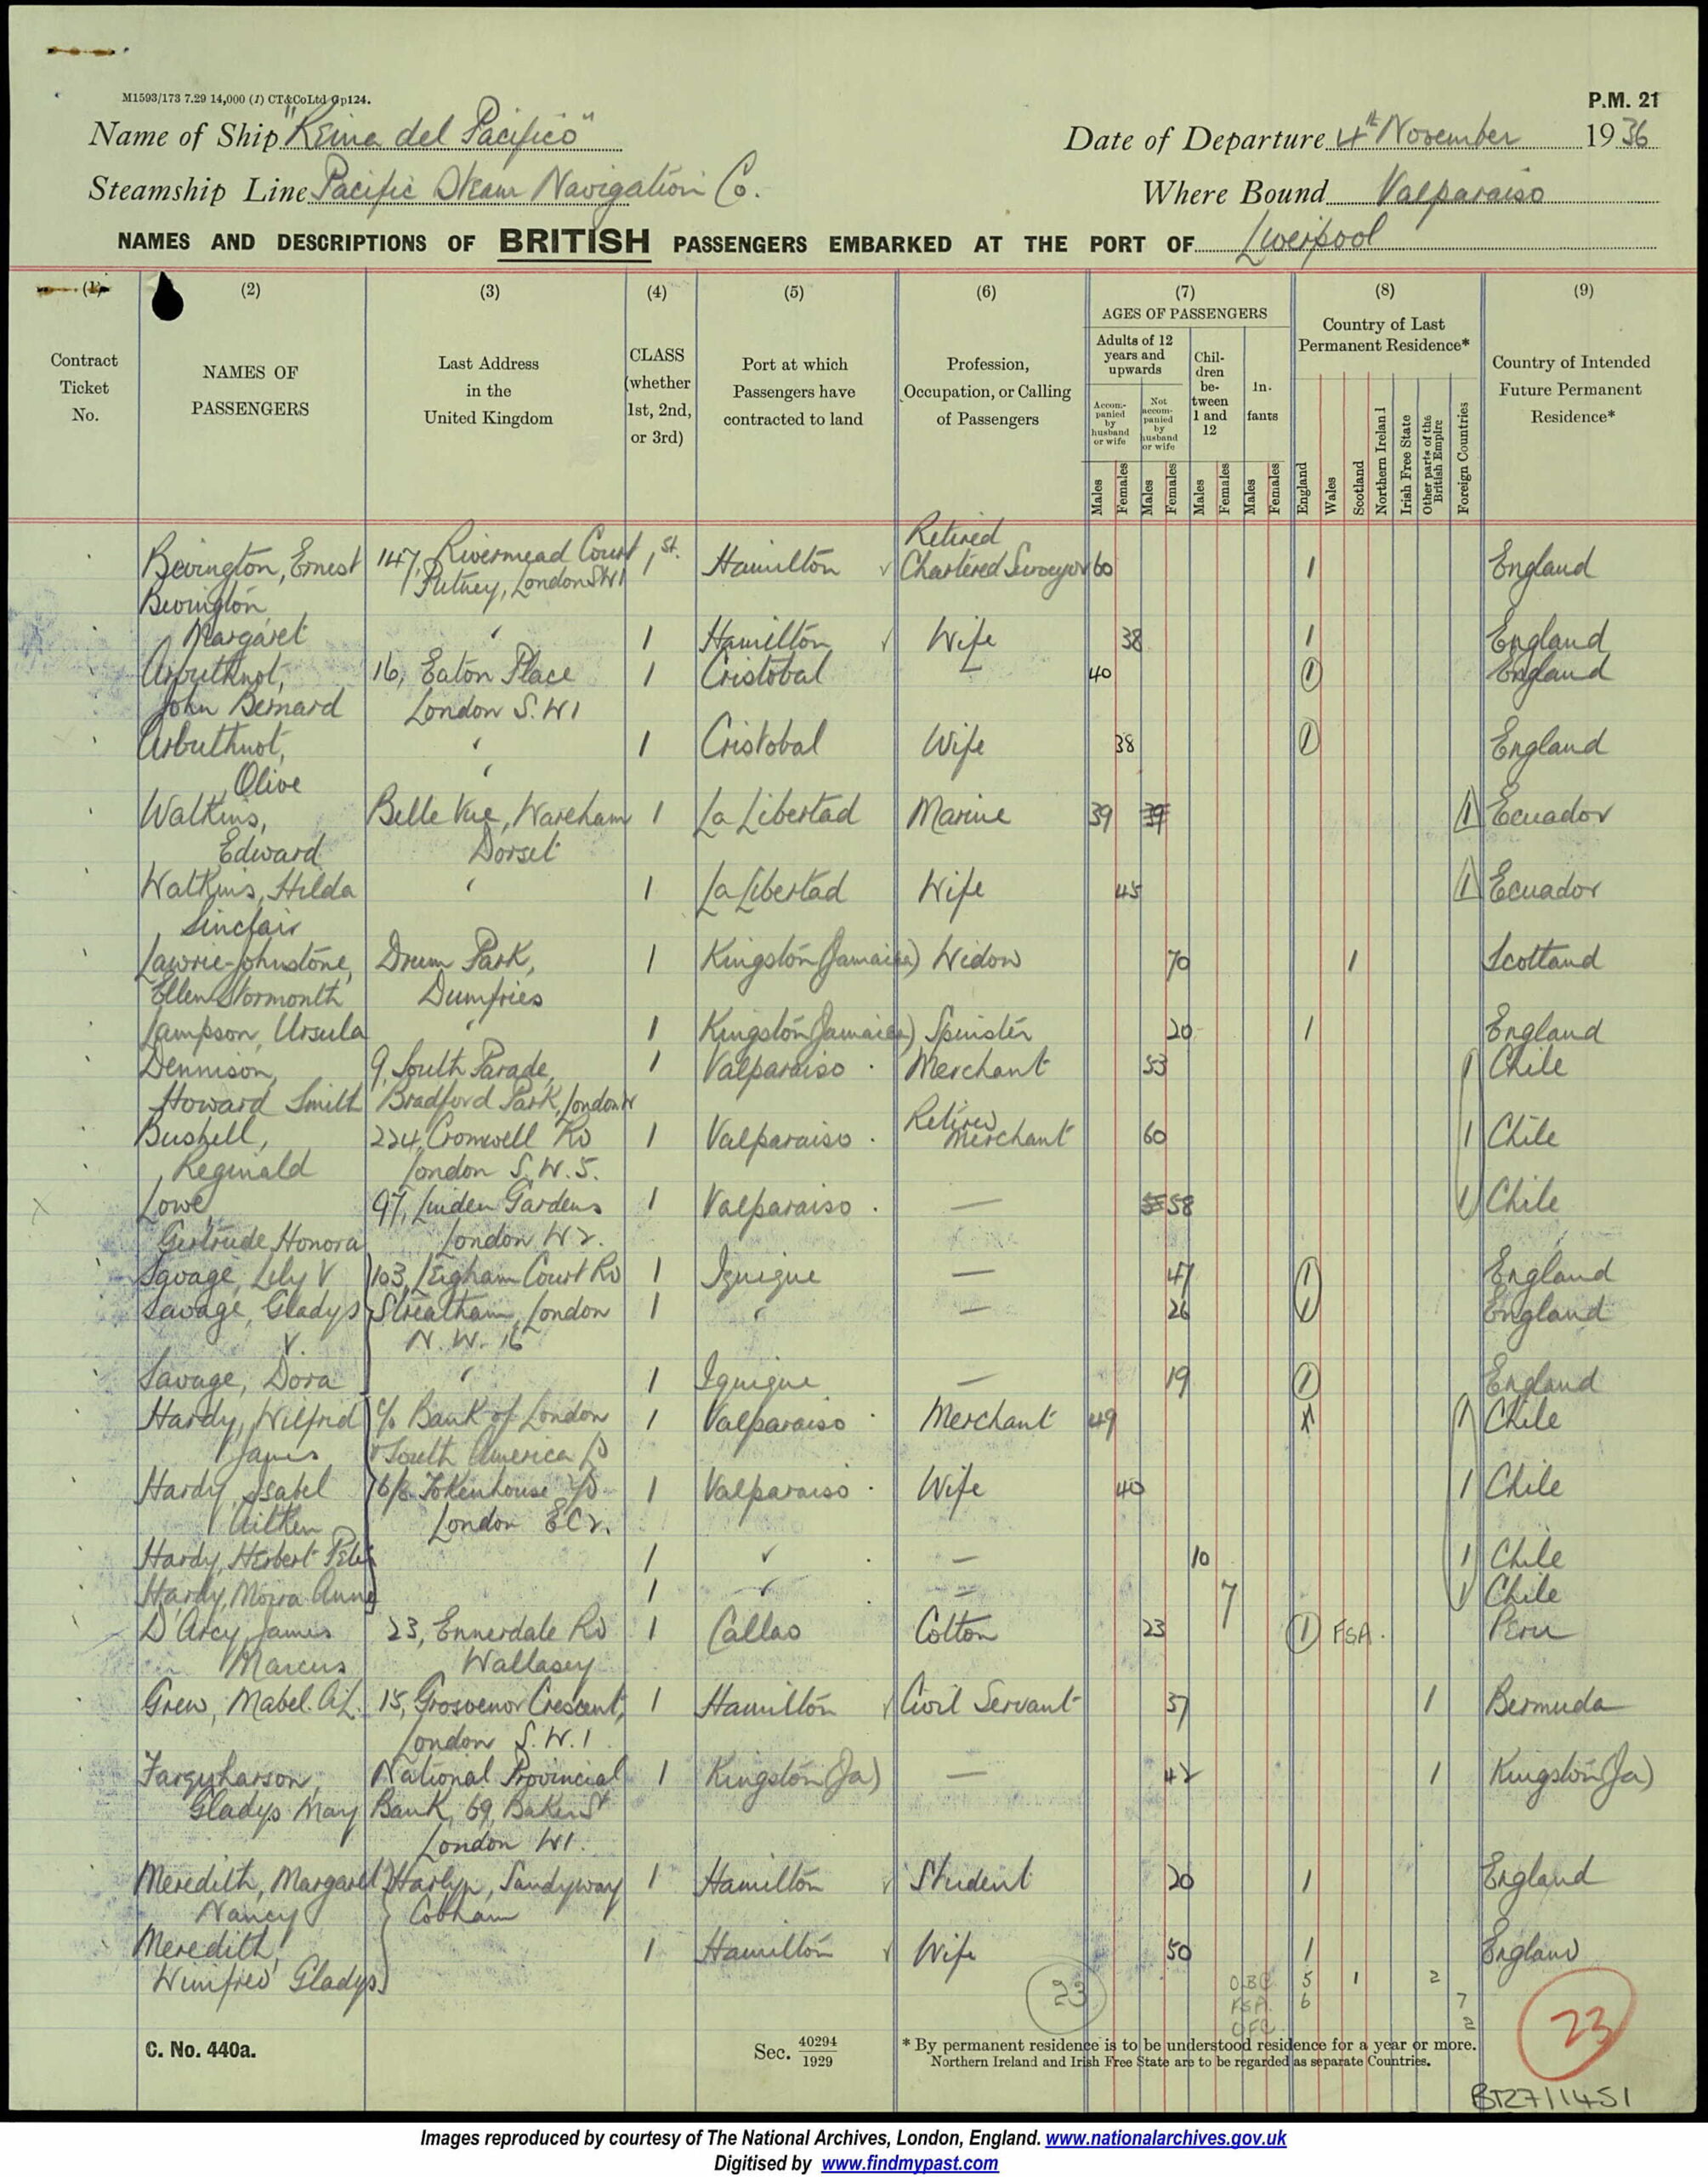 M1593/173 7.29 14,000 (1) CT&CoLtd Gp124.
P.M. 21
Name of Ship "Reina del Pacifico"
Date of Departure 4th November 1936
Steamship Line Pacific Steam Navigation Co.
Where Bound Valparaiso
NAMES AND DESCRIPTIONS OF BRITISH PASSENGERS EMBARKED AT THE PORT OF Liverpool
(1) (2) (3) (4) (5) (6) (7) (8) (9)
Contract Ticket No.
NAMES OF PASSENGERS
Last Address in the United Kingdom
CLASS (whether 1st, 2nd, or 3rd)
Port at which Passengers have contracted to land
Profession, Occupation, or Calling of Passengers
AGES OF PASSENGERS
Adults of 12 years and upwards
Accompanied by husband or wife
Not accompanied by husband or wife
Children between 1 and 12
Infants
Males Females Males Females Males Females Males Females
Country of Last Permanent Residence*
England Wales Scotland Northern Ireland Irish Free State Other parts of the British Empire Foreign Countries
Country of Intended Future Permanent Residence*
Retired
Bevington, Ernest 147, Rivermead Court 1st. Hamilton Chartered Surveyor 60 1 England
Putney, London SW1
Bevington
Margaret " 1 Hamilton Wife 38 1 England
Arbuthnot, 16, Eaton Place 1 Cristobal — 40 1 England
John Bernard London S.W1
Arbuthnot, " 1 Cristobal Wife 38 1 England
Olive "
Walkins, Belle Vue, Wareham 1 La Libertad Marine 39 39 1 Ecuador
Edward Dorset
Watkins, Hilda " 1 La Libertad Wife 45 1 Ecuador
Sinclair
Lawrie-Johnstone, Drum Park, 1 Kingston (Jamaica) Widow 70 1 Scotland
Ellen Stormonth Dumfries
Lampson, Ursula " 1 Kingston (Jamaica) Spinster 20 1 England
Dennison, 9, South Parade, 1 Valparaiso Merchant 53 1 Chile
Howard Smith Bradford Park, London W
Retired
Bushell, 224, Cromwell Rd 1 Valparaiso Merchant 60 1 Chile
Reginald London S.W.5.
Lowe 97, Linden Gardens 1 Valparaiso — 58 1 Chile
Gertrude Honora London W2.
Savage, Lily V 103, Leigham Court Rd 1 Iquique — 47 1 England
Savage, Gladys Streatham, London 1 " — 26 1 England
V. N.W. 16
Savage, Dora " 1 Iquique — 19 1 England
Hardy, Wilfrid c/o Bank of London 1 Valparaiso Merchant 49 1 Chile
James & South America Ld
Hardy, Isabel 6/8 Tokenhouse Yd 1 Valparaiso Wife 40 1 Chile
Aitken London EC2.
Hardy, Herbert Peter 1 " — 10 1 Chile
Hardy, Moira Anne 1 " — 7 1 Chile
D'Arcy, James 23, Ennerdale Rd 1 Callao Cotton 23 1 FSA. Peru
Marcus Wallasey
Grew, Mabel. A.L. 15, Grosvenor Crescent, 1 Hamilton Civil Servant 37 1 Bermuda
London S.W.1
Farquharson, National Provincial 1 Kingston (Ja) — 42 1 Kingston (Ja)
Gladys May Bank, 69, Baker St
London W1.
Meredith, Margaret Harlyn, Sandyway 1 Hamilton Student 20 1 England
Nancy Cobham
Meredith, 1 Hamilton Wife 50 1 England
Winifred Gladys
23 OBC 5 1 2
FSA. 6 7
OFC 2
23
C. No. 440a.
Sec. 40294/1929
* By permanent residence is to be understood residence for a year or more.
Northern Ireland and Irish Free State are to be regarded as separate Countries.
BT27/1451
Images reproduced by courtesy of The National Archives, London, England. www.nationalarchives.gov.uk
Digitised by www.findmypast.com